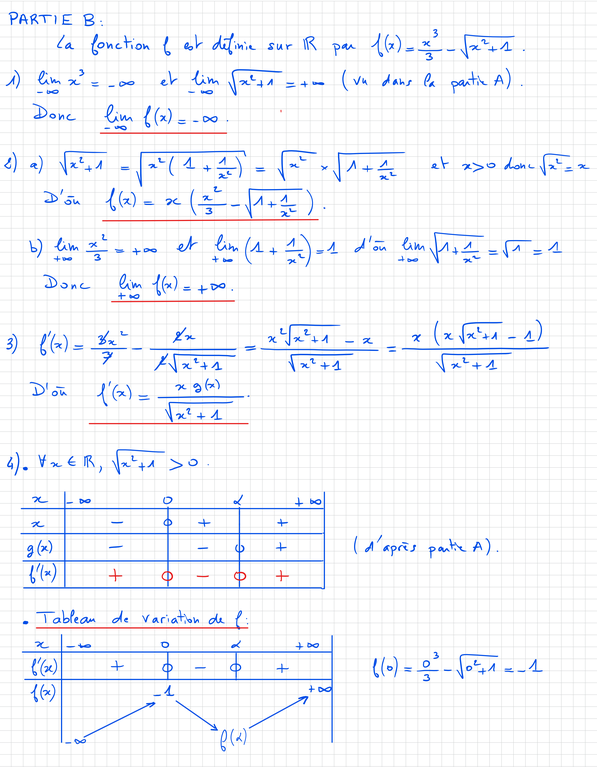 PARTIE B:
La fonction f est définie sur ℝ par f(x) = x³/3 - √(x²+1).
1) lim_{-∞} x³ = -∞ et lim_{-∞} √(x²+1) = +∞ (vu dans la partie A).
Donc lim_{-∞} f(x) = -∞.
2) a) √(x²+1) = √(x²(1 + 1/x²)) = √(x²) × √(1 + 1/x²) et x>0 donc √(x²) = x
D'où f(x) = x (x²/3 - √(1 + 1/x²)).
b) lim_{+∞} x²/3 = +∞ et lim_{+∞} (1 + 1/x²) = 1 d'où lim_{+∞} √(1 + 1/x²) = √1 = 1
Donc lim_{+∞} f(x) = +∞.
3) f'(x) = 3x²/3 - 2x/(2√(x²+1)) = (x²√(x²+1) - x)/√(x²+1) = x (x√(x²+1) - 1)/√(x²+1)
D'où f'(x) = x g(x)/√(x²+1).
4). ∀x ∈ ℝ, √(x²+1) > 0.
x -∞ 0 α +∞
x - 0 + +
g(x) - - 0 + (d'après partie A).
f'(x) + 0 - 0 +
• Tableau de variation de f:
x -∞ 0 α +∞
f'(x) + 0 - 0 + f(0) = 0³/3 - √(0²+1) = -1
f(x) -1 +∞
-∞ f(α)